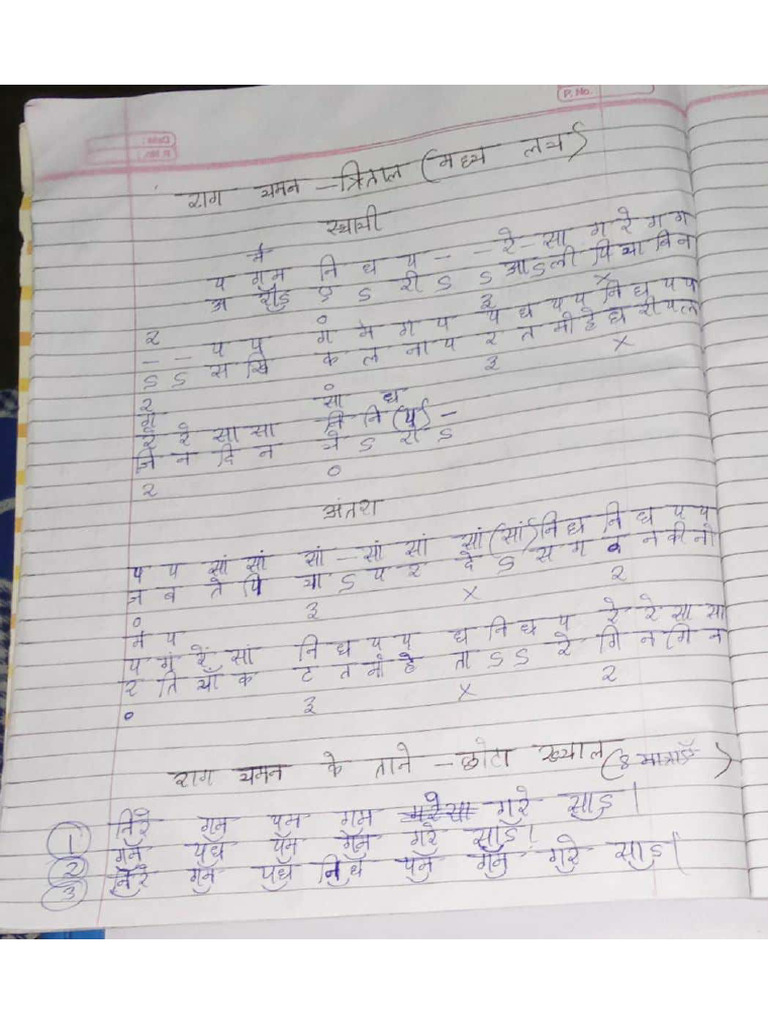 P. No.
Date
राग यमन – त्रिताल (मध्य लय)
स्थायी
मे
प गम नि ध प - - रे - सा ग रे ग ग
अ रीs ए s री s s आ s ली पि या बि न
० ३ x
२
- - प प ग मे ग प प ध प प नि ध प प
s s स खि क ल ना प र त मो हे घ री प ल
२ ० ३ x
सां ध
रे रे सा सा नि नि (प) -
गि न दि न मे s री s
२ ०
अंतरा
प प सां सां सां - सां सां सां (सां) नि ध नि ध प प
ज ब ते पि या s प र दे s स ग व न की नो
० ३ x २
मे प
प गं रें सां नि ध प प ध नि ध प रे रे सा सा
र ति याँ क ट त मो हे ता s s रे गि न गि न
० ३ x २
राग यमन के ताने – छोटा ख्याल (8 मात्राऐं)
1 निरे गम पम गम गरे साs।
2 गम पध पम गम गरे साs।
3 निरे गम पध निध पम गम गरे साs।